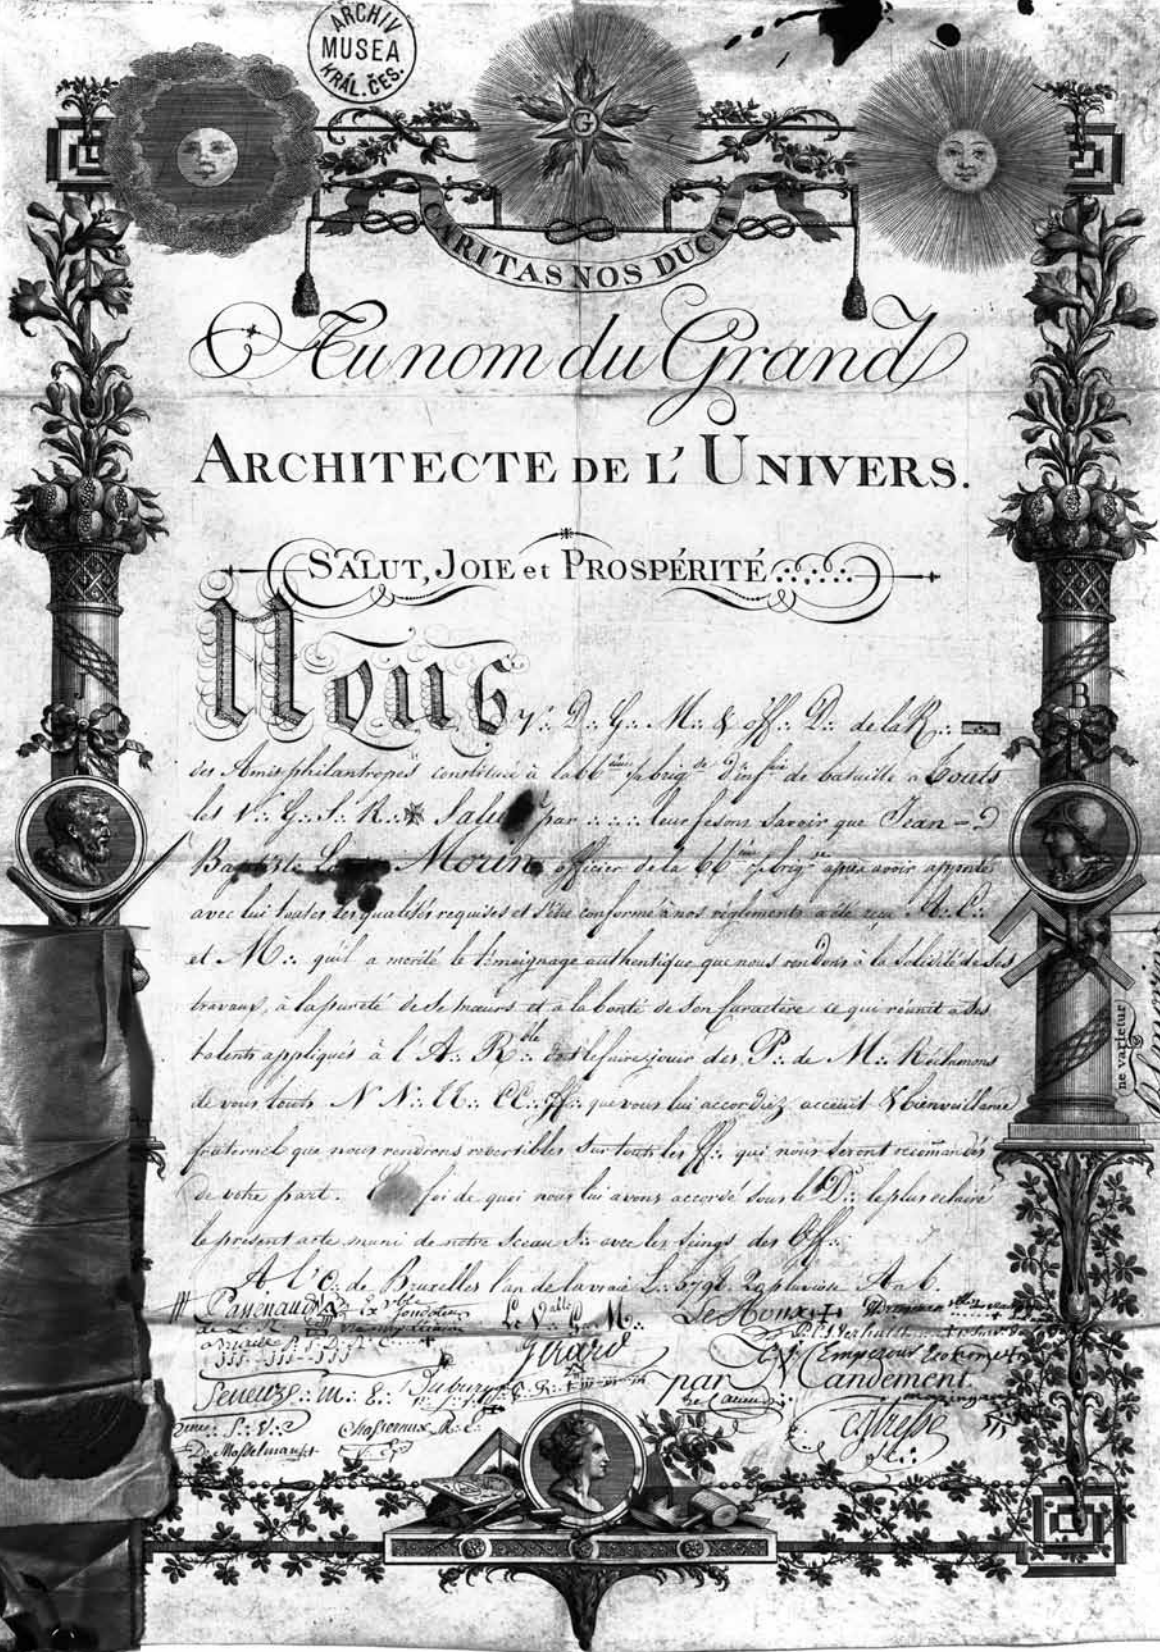 ARCHIV
MUSEA
KRÁL. ČES.
G
CARITAS NOS DUCIT
Au nom du Grand
ARCHITECTE DE L' UNIVERS.
SALUT, JOIE et PROSPÉRITÉ
J
B
Nous V∴ D∴ G∴ M∴ & off∴ D∴ de la R∴
des Amis philantropes constituée à la 66 ème ½ brig de d'inf rie de bataille a touts
les V∴ G∴ S∴ R∴ Salut par ∴∴ leur fesons Savoir que Jean =
Baptiste Morin officier de la 66 ème ½ brig de après avoir apporté
avec lui toutes les qualités requises et s'être conformé à nos réglements a été reçu A∴ C∴
et M∴ qu'il a mérité le témoignage authentique que nous rendons à la Solidité de ses
travaux, à la pureté de Se mœurs et a la bonté de son Caractère ce qui réunit a ses
talents appliqués à l'A∴ R ble ∴ le faire jouir des P∴ de M∴ Réclamons
de vous touts N N∴ CC∴ ff∴ que vous lui accordiez acceuil & bienveillance
fraternel que nous rendrons reversibles sur touts les ff∴ qui nous seront recomandés
de votre part. foi de quoi nous lui avons accordé sous le D∴ le plus eclairé
le présent acte muni de notre Sceau S∴ avec les Seings des Off∴
A l'O∴ de Bruxelles l'an de la vraie L∴ 5798. 29 pluviose An 6.
fondateur
Le V able G∴ M∴
Girard
par Mandement
Chasseraux
De Mosselman
ne varietur